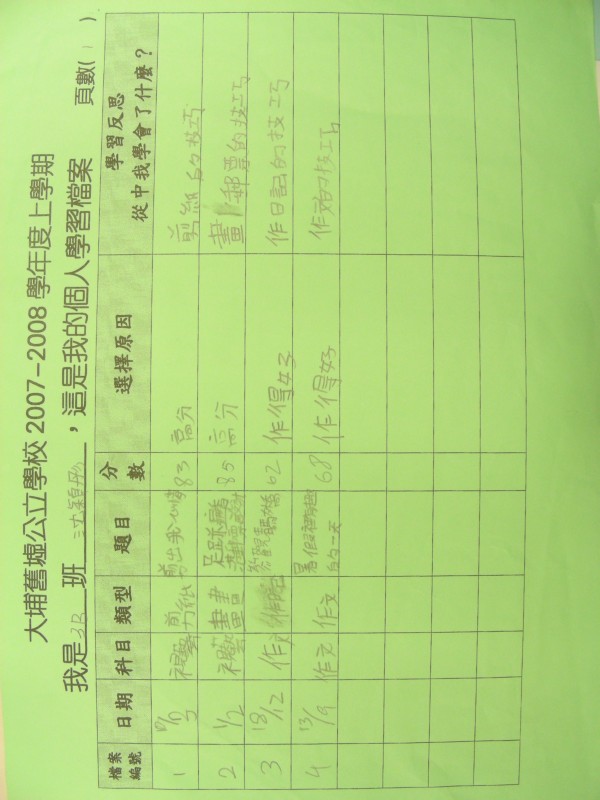 大埔舊墟公立學校 2007-2008 學年度上學期
我是 3B 班 沈穎彤，這是我的個人學習檔案 頁數( 1 )
檔案編號 日期 科目 類型 題目 分數 選擇原因 學習反思 從中我學會了什麼？
1 視藝 剪紙 83 高分 剪紙的技巧
2 1/2 視藝 畫畫 85 高分 畫郵票的技巧
3 18/12 作文 62 作得好 作日記的技巧
4 13/9 作文 作文 68 作得好 作文的技巧